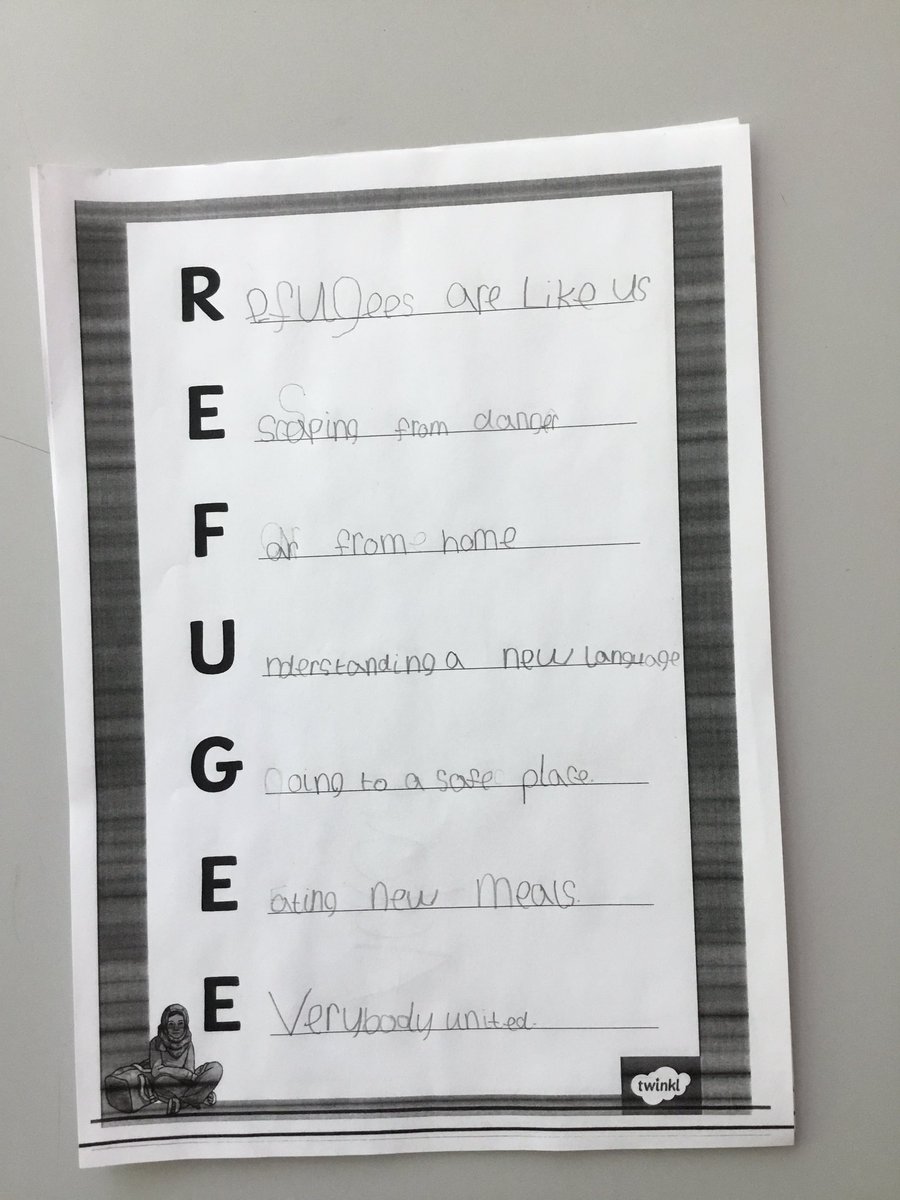 R efugees are Like us
E scaping from danger
F ar from home
U nderstanding a new language
G oing to a safe place.
E ating new meals.
E Verybody united.
twinkl